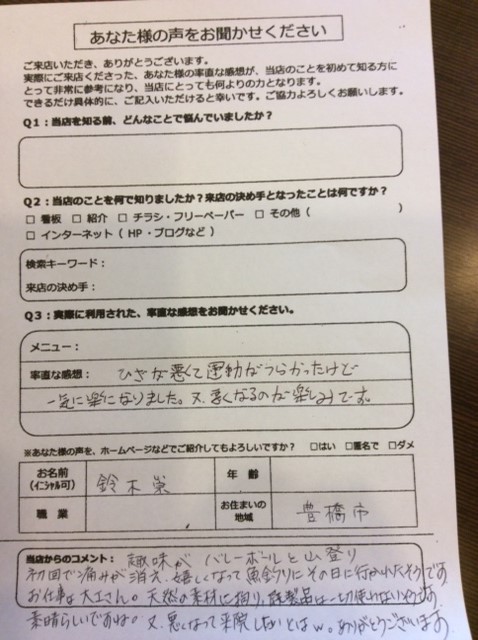 あなた様の声をお聞かせください
ご来店いただき、ありがとうございます。
実際にご来店くださった、あなた様の率直な感想が、当店のことを初めて知る方に
とって非常に参考になり、当店にとっても何よりの力となります。
できるだけ具体的に、ご記入いただけると幸いです。ご協力よろしくお願いします。
Q1:当店を知る前、どんなことで悩んでいましたか?
Q2:当店のことを何で知りましたか?来店の決め手となったことは何ですか?
□ 看板 □ 紹介 □ チラシ・フリーペーパー □ その他( )
□ インターネット(HP・ブログなど)
検索キーワード:
来店の決め手:
Q3:実際に利用された、率直な感想をお聞かせください。
メニュー:
率直な感想: ひざが悪くて運動がつらかったけど
一気に楽になりました。又、悪くなるのが楽しみです。
※あなた様の声を、ホームページなどでご紹介してもよろしいですか? □はい □匿名で □ダメ
お名前 鈴木 年齢
(イニシャル可)
職業 お住まいの地域 豊橋市
当店からのコメント: 趣味が バレーボールと山登り
初回で痛みが消え、嬉しくなって魚釣りにその日に行かれたそうです
お仕事は大工さん。天然の素材に拘り、既製品は一切使わないそうです
素晴らしいですね。又、悪くなって来院したいとはw。ありがとうございます。